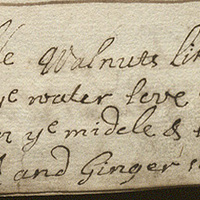 Walnuts
ye water love
ye midele &
and Ginger